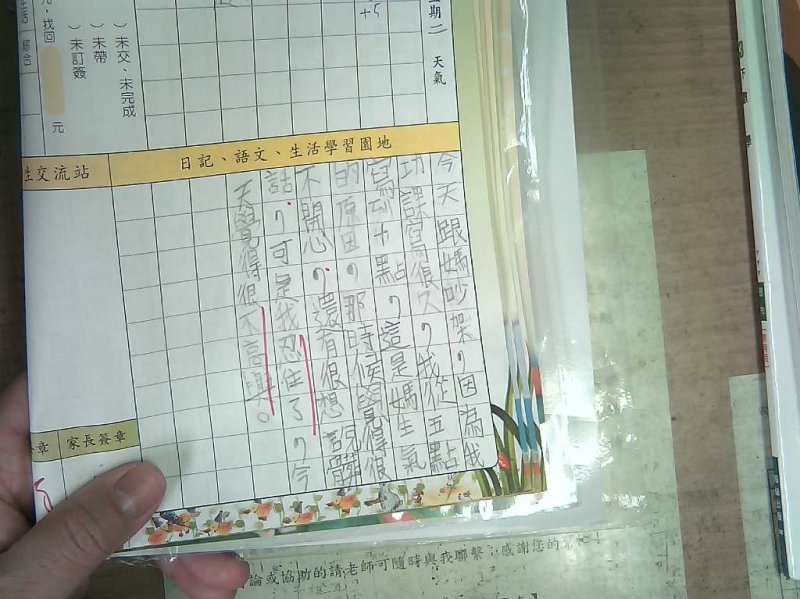 期二 天氣
+5
）未交、未完成
）未帶
）未訂簽
，找回 元
綜合
日記、語文、生活學習園地
性交流站
今天跟媽吵架，因為我
功課寫很久，我從五點
寫到十點，這是媽生氣
的原因，那時候覺得很
不開心，還有很想說髒
話，可是我忍住了，今
天覺得很不高興。
家長簽章
章
論或協助的請老師可隨時與我聯繫，感謝您的